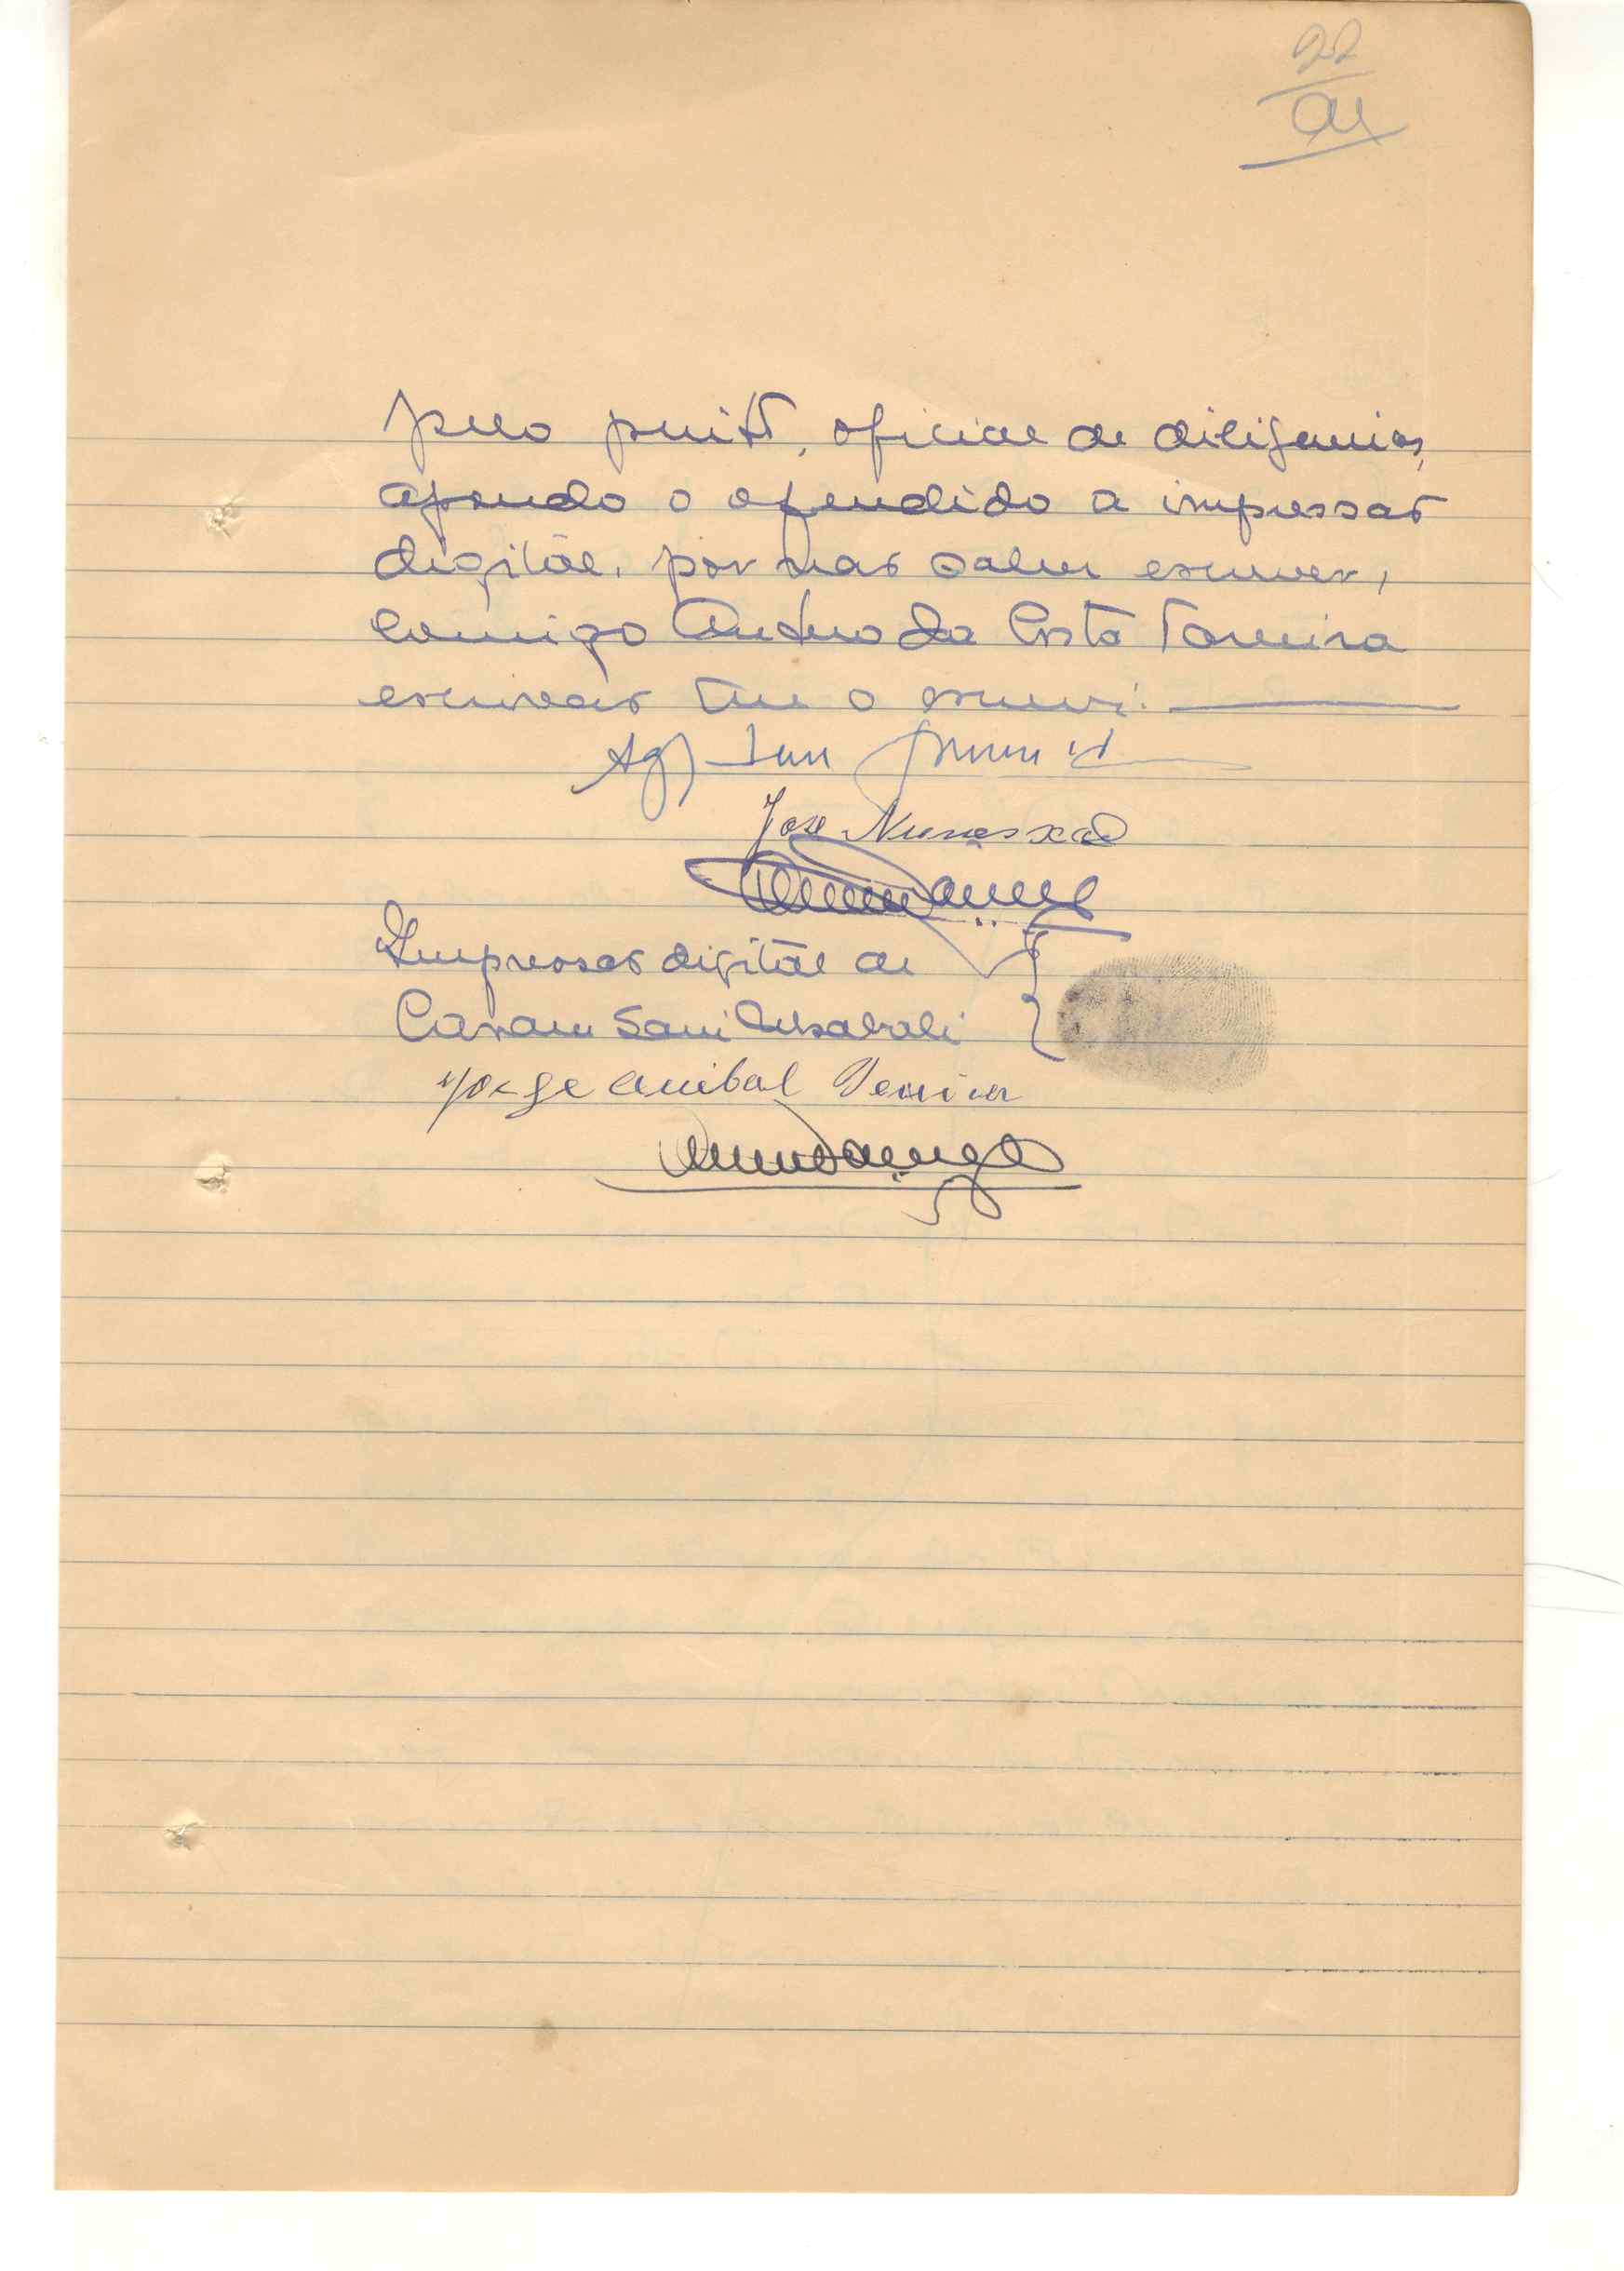 22
pelo perito, oficial de diligencias,
apondo o ofendido a impressão
digital, por não saber escrever,
comigo Antero da Costa Taveira
escrivão que o escrevi.
José Nunes
Impressão digital de
Caram Sani Alsabali
Jorge Anibal Pereira